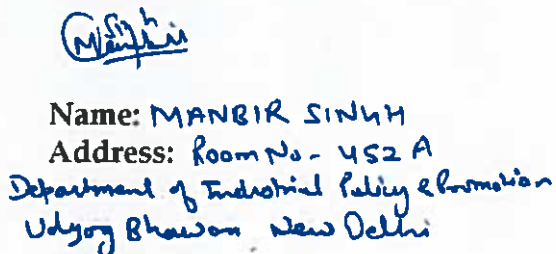 Name: MANBIR SINGH
Address: Room No - 452 A
Department of Industrial Policy & Promotion
Udyog Bhawan New Delhi